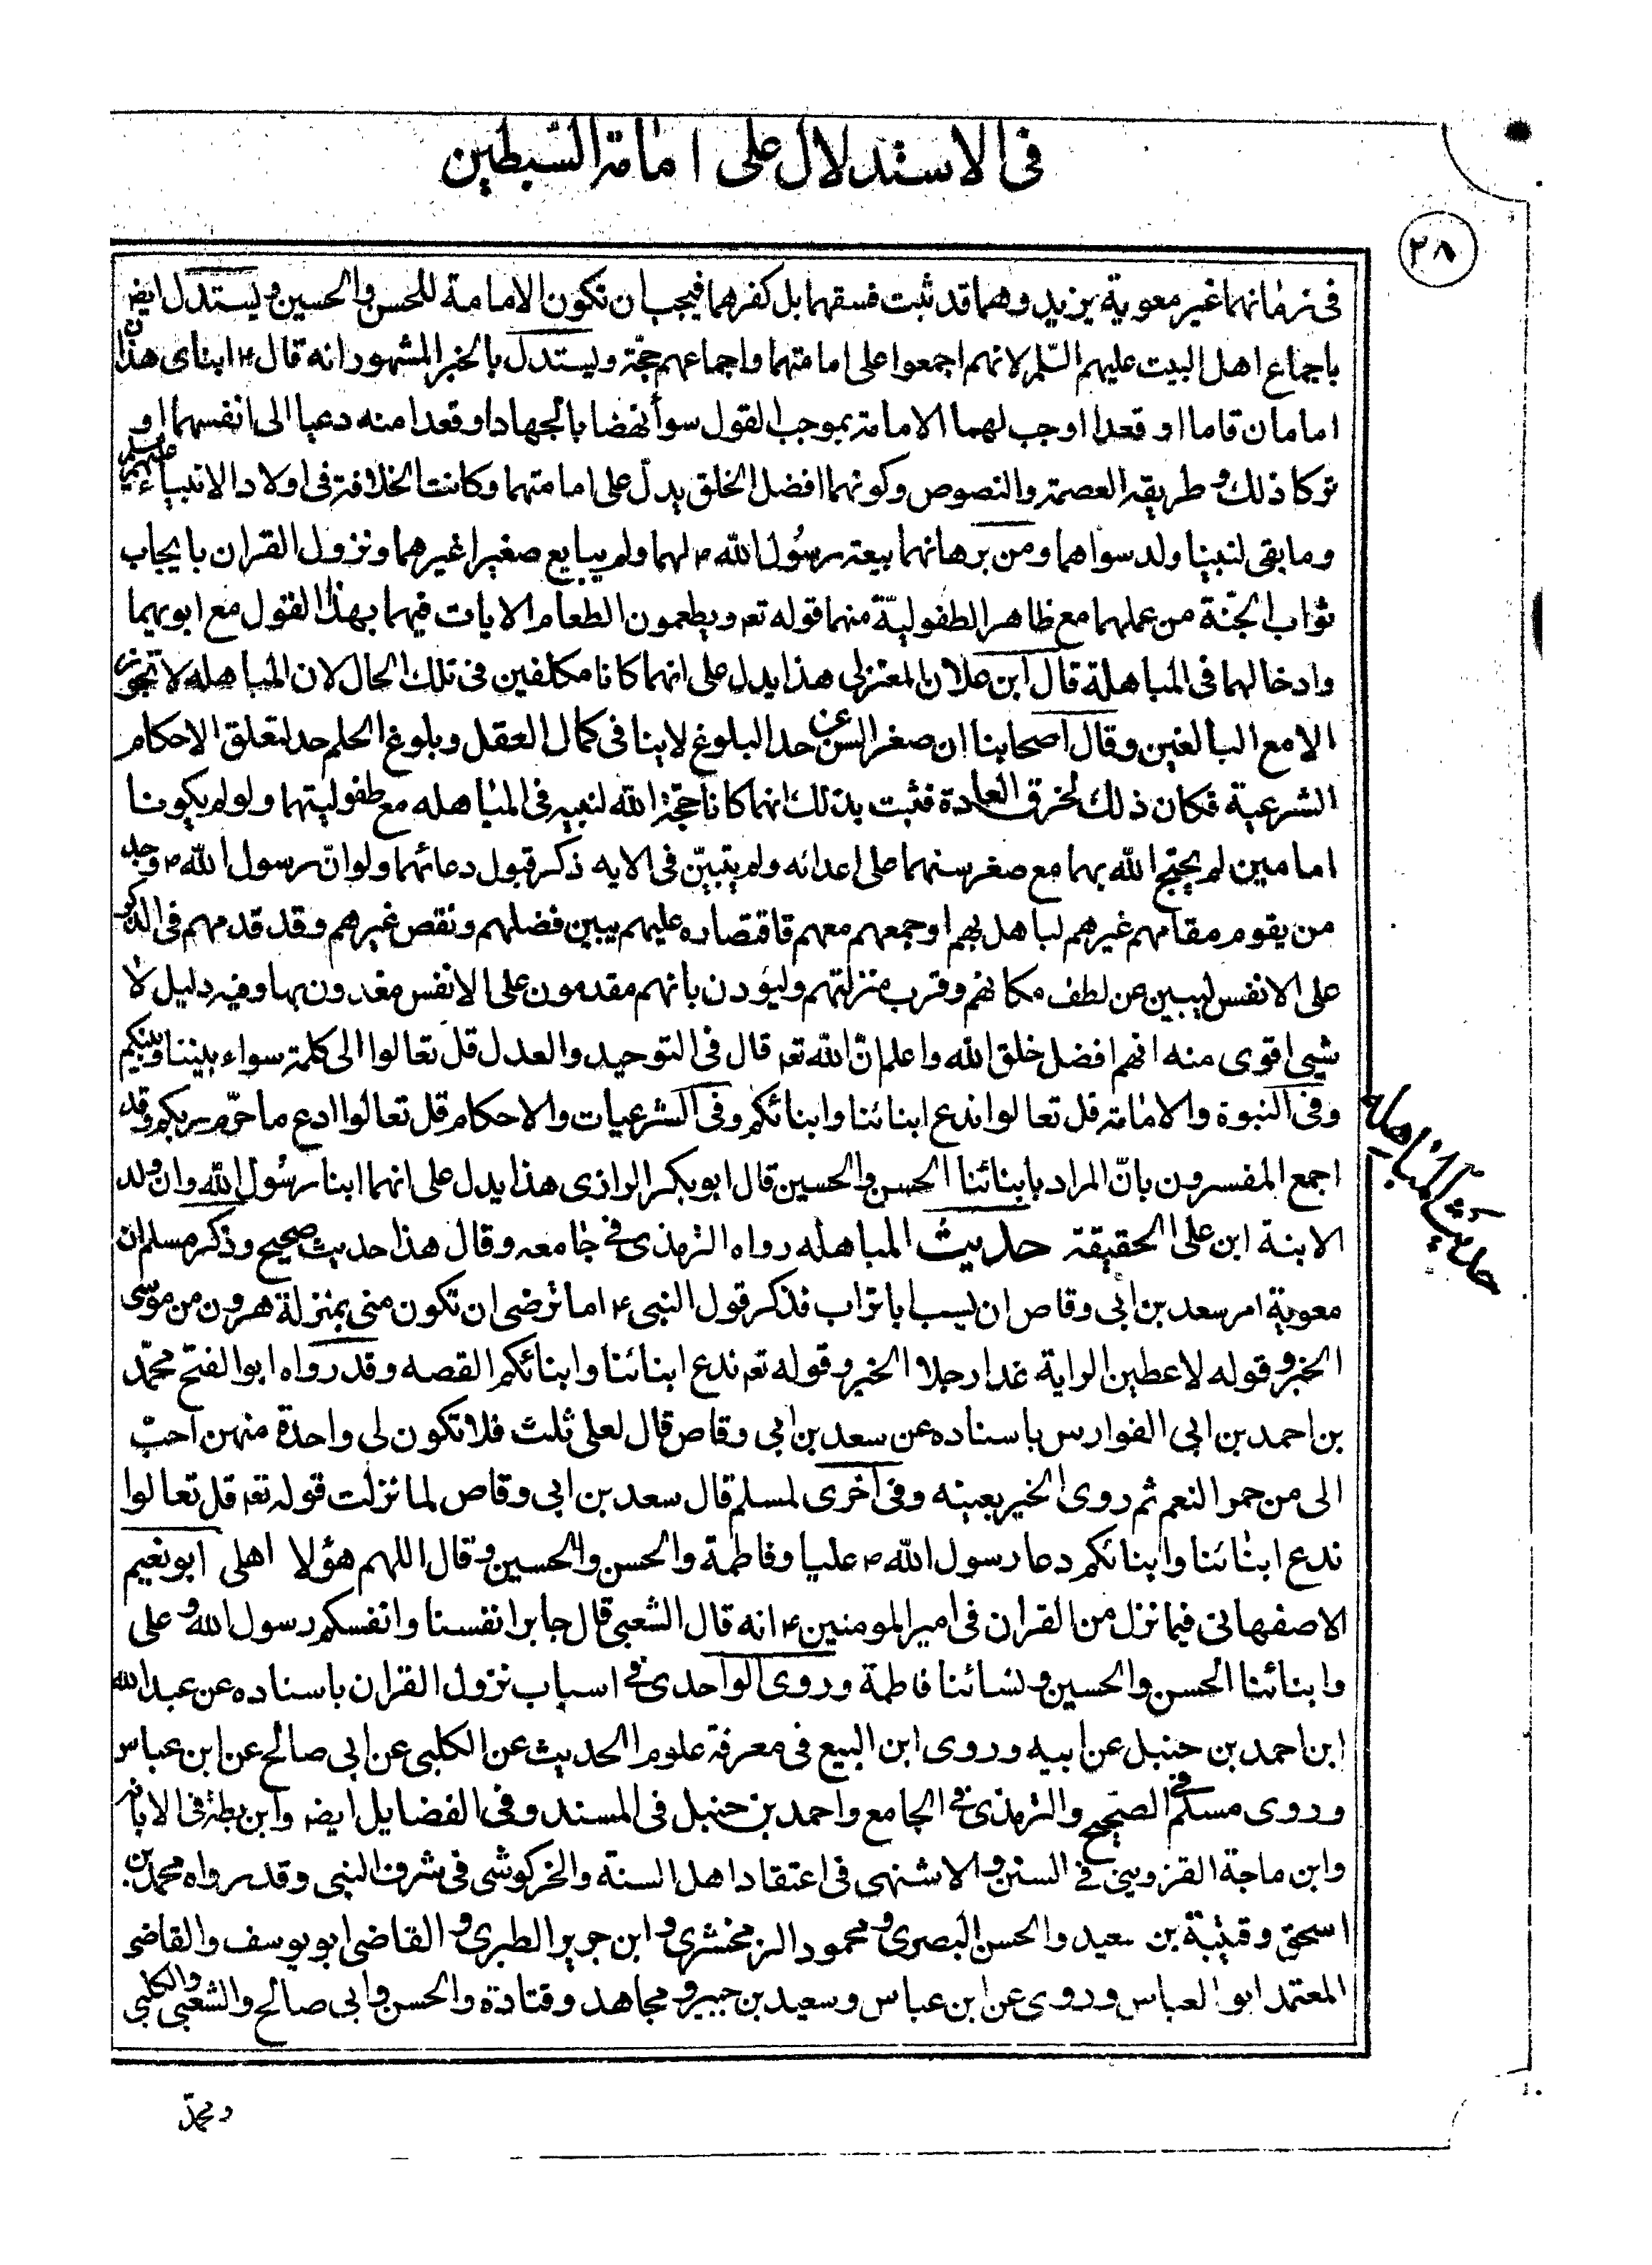 في الاستدلال على امامة السّبطين
٢٨
في زمانهما غير معوية يزيد وهما قد ثبت فسقهما بل كفرهما فيجب ان تكون الامامة للحسن والحسين ويستدل ايض
باجماع اهل البيت عليهم السّلم لانهم اجمعوا على امامتهما واجماعهم حجّة ويستدل بالخبر المشهور انه قال ابناى هذان
امامان قاما او قعدا اوجب لهما الامامة بموجب القول سواء نهضا بالجهاد او قعدا منه دعيا الى انفسهما او
تركا ذلك وطريقة العصمة والنصوص وكونهما افضل الخلق يدلّ على امامتهما وكانت الخلافة في اولاد الانبياء عليهم السلم
وما بقى لنبينا ولد سواهما ومن برهانهما بيعة رسول الله ص لهما ولم يبايع صغيرا غيرهما ونزول القران بايجاب
ثواب الجنّة من عملهما مع ظاهر الطفوليّة منهما قوله تع ويطعمون الطعام الايات فيهما بهذا القول مع ابويهما
وادخالهما في المباهلة قال ابن علان المعتزلى هذا يدل على انهما كانا مكلفين في تلك الحال لان المباهله لا تجوز
الا مع البالغين وقال اصحابنا ان صغر السن عن حد البلوغ لاينافى كمال العقل وبلوغ الحلم حد لتعلق الاحكام
الشرعية فكان ذلك لخرق العادة فثبت بذلك انهما كانا حجّة الله لنبيه في المباهله مع طفوليتهما ولو لم يكونا
امامين لم يحتج الله بهما مع صغر سنهما على اعدائه ولم يتبيّن في الايه ذكر قبول دعائهما ولو انّ رسول الله ص وجد
من يقوم مقامهم غيرهم لباهل بهم او جمعهم معهم فاقتصاره عليهم يبين فضلهم ونقص غيرهم وقد قدمهم في الذكر
على الانفس ليبين عن لطف مكانهم وقرب منزلتهم وليؤذن بانهم مقدمون على الانفس مفدون بها وفيه دليل لا
شيى اقوى منه انهم افضل خلق الله واعلم انّ الله تع قال في التوحيد والعدل قل تعالوا الى كلمة سواء بيننا وبينكم
وفى النبوة والامامة قل تعالوا ندع ابنائنا وابنائكم وفى الشرعيات والاحكام قل تعالوا ادع ما حرّم ربكم وقد
اجمع المفسرون بانّ المراد بابنائنا الحسن والحسين قال ابو بكر الرازى هذا يدل على انهما ابنا رسول الله وان ولد
الابنة ابن على الحقيقة حديث المباهله رواه الترمذى في جامعه وقال هذا حديث صحيح وذكر مسلم ان
حديث المباهلة
معوية امر سعد بن ابى وقاص ان يسب ابا تراب فذكر قول النبى اما ترضى ان تكون منى بمنزلة هرون من موسى
الخبر وقوله لاعطين الراية غدا رجلا الخبر وقوله تع ندع ابنائنا وابنائكم القصه وقد رواه ابو الفتح محمّد
بن احمد بن ابى الفوارس باسناده عن سعد بن ابى وقاص قال لعلى ثلث فلا تكون لى واحدة منهن احبّ
الى من حمر النعم ثم روى الخبر بعينه وفى اخرى لمسلم قال سعد بن ابى وقاص لما نزلت قوله تع قل تعالوا
ندع ابنائنا وابنائكم دعا رسول الله ص عليا وفاطمة والحسن والحسين وقال اللهم هؤلا اهلى ابو نعيم
الاصفهانى فيما نزل من القران في امير المومنين انه قال الشعبى قال جابر انفسنا وانفسكم رسول الله وعلى
وابنائنا الحسن والحسين ونسائنا فاطمة وروى الواحدى في اسباب نزول القران باسناده عن عبد الله
ابن احمد بن حنبل عن ابيه وروى ابن البيع في معرفة علوم الحديث عن الكلبى عن ابى صالح عن ابن عباس
وروى مسلم في الصحيح والترمذى في الجامع واحمد بن حنبل في المسند وفى الفضايل ايضا وابن بطة في الابانة
وابن ماجة القزوينى في السنن والاشنهى في اعتقاد اهل السنة والخركوشى في شرف النبى وقد رواه محمد بن
اسحق وقتيبة بن سعيد والحسن البصرى ومحمود الزمخشرى وابن جرير الطبرى والقاضى ابو يوسف والقاضى
المعتمد ابو العباس وروى عن ابن عباس وسعيد بن جبير ومجاهد وقتادة والحسن وابى صالح والشعبى والكلبى
ومحمّد